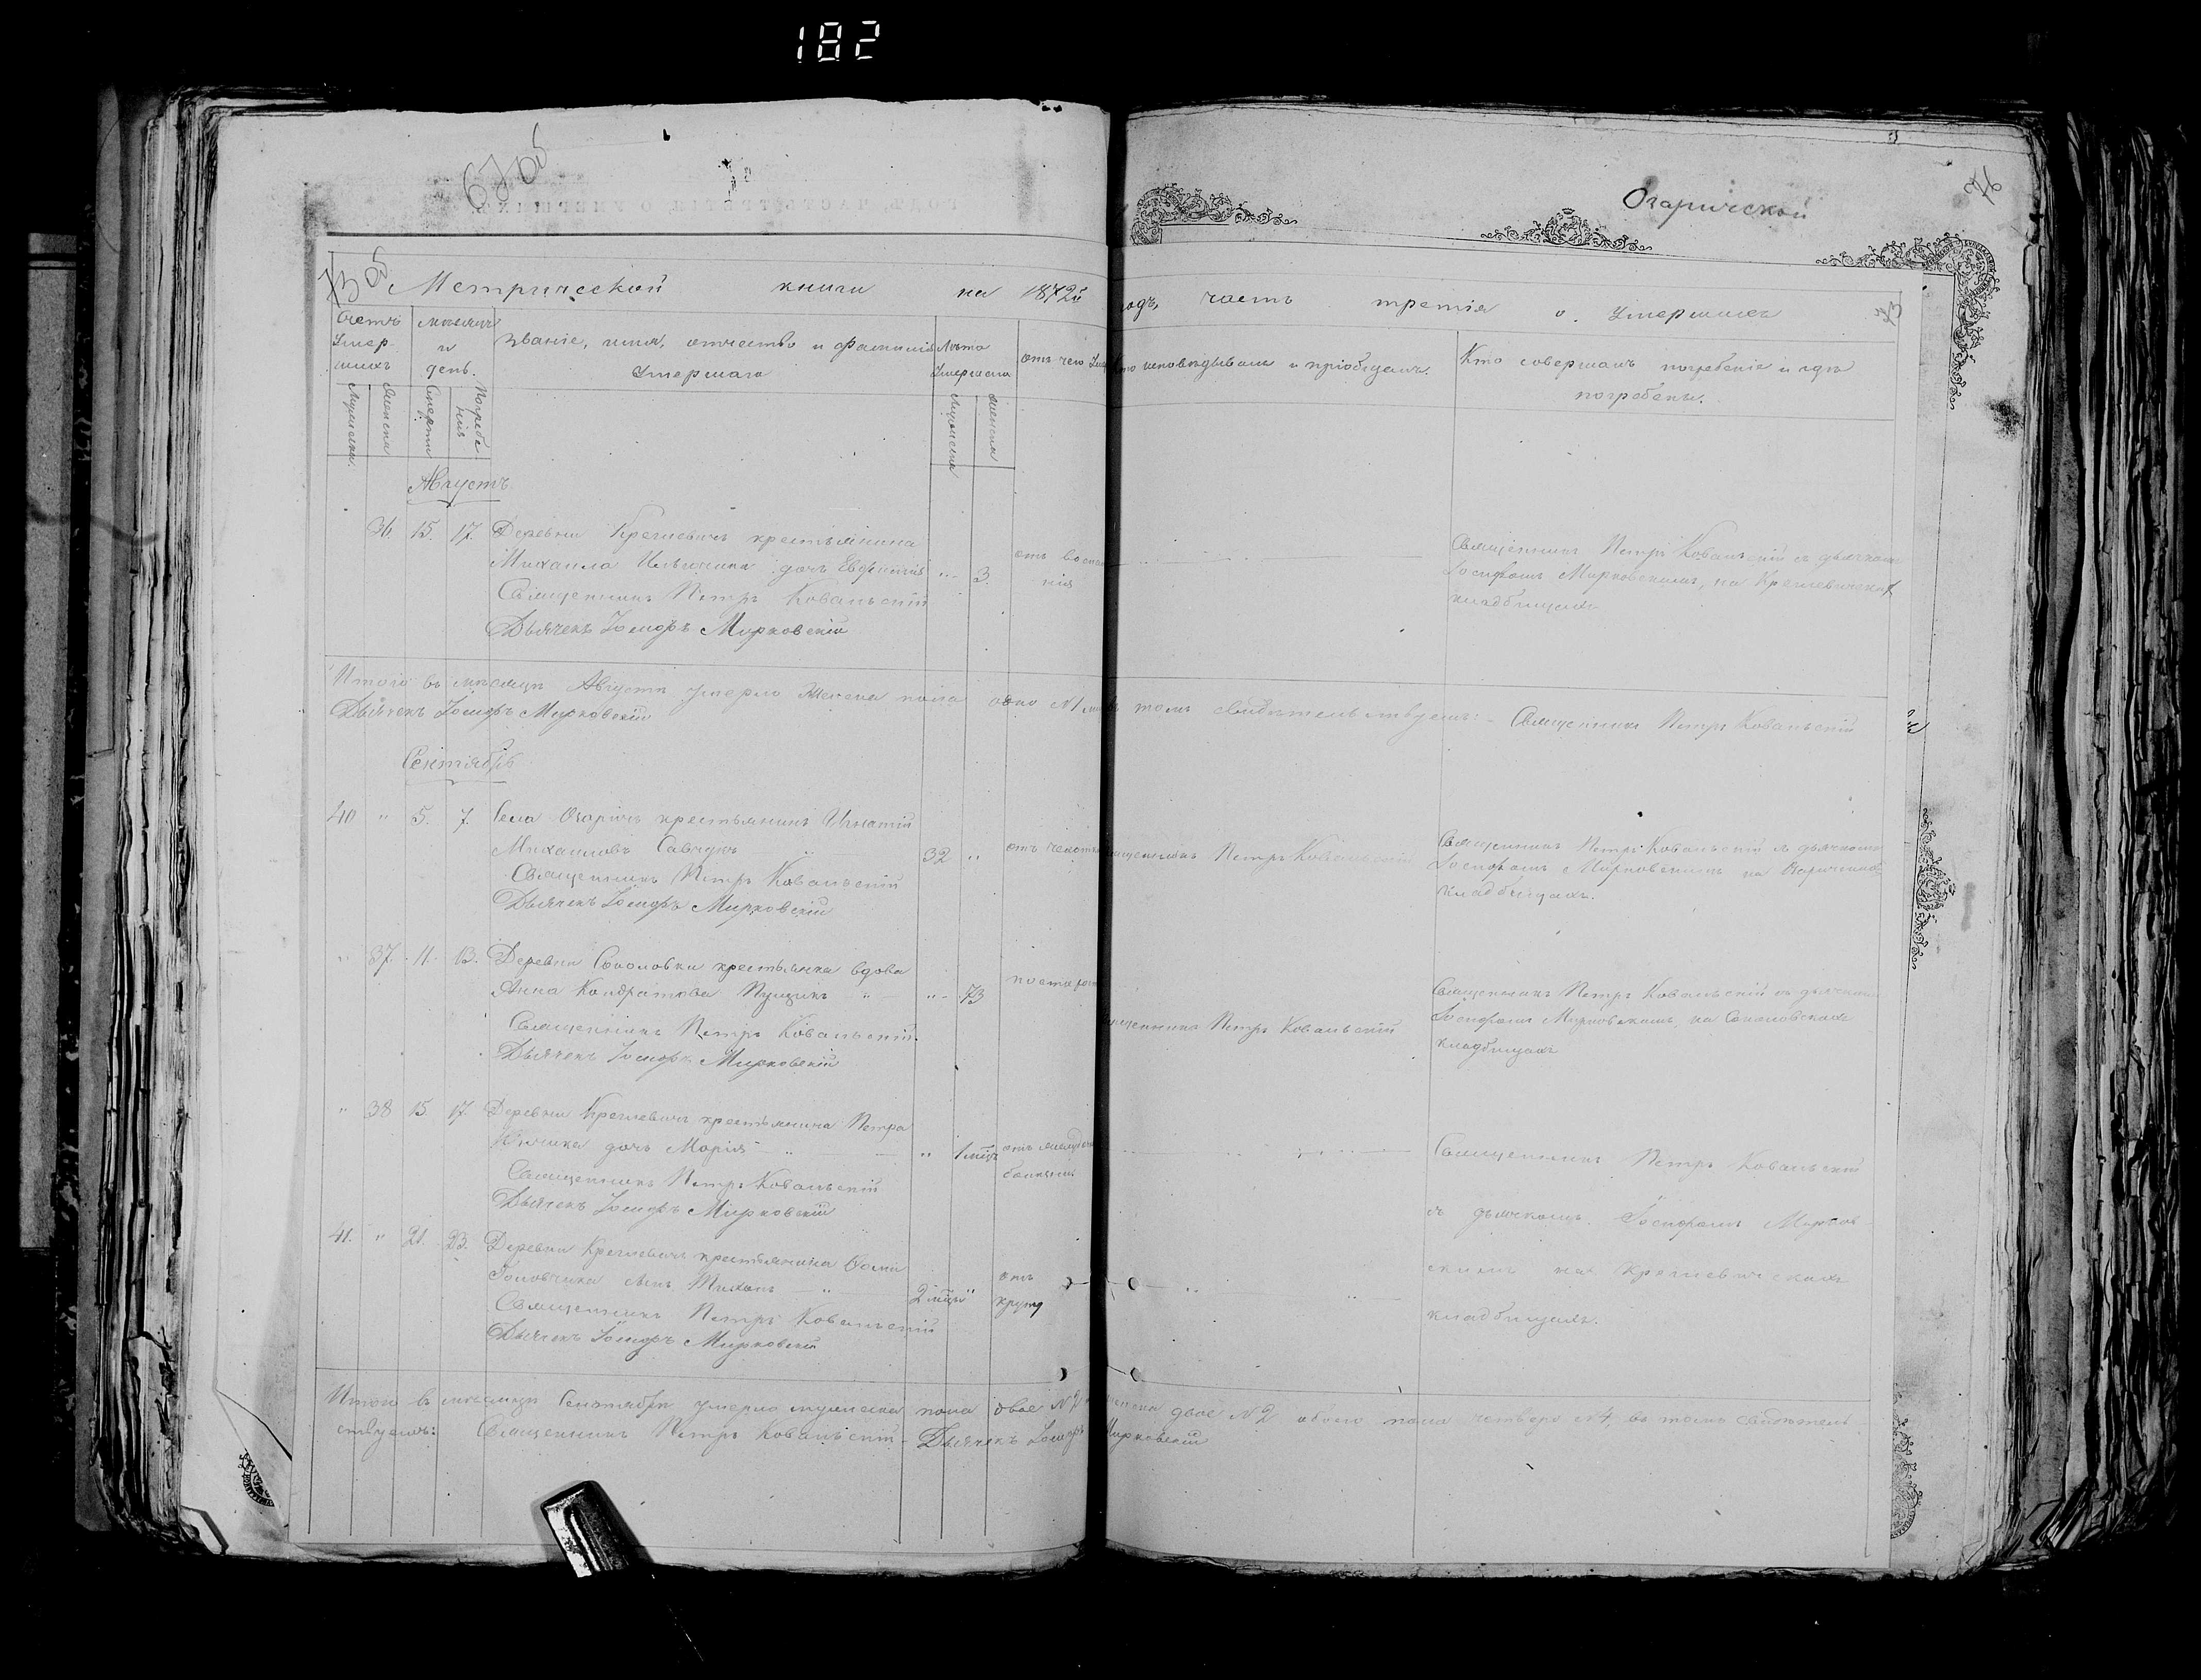 182
67 об
76
Огарической
73 об
Метрической книги на 1872й
годъ, часть третія о Умершихъ
73
Счетъ Умер- шихъ
Мѣсяцъ и день.
Званіе, имя, отчество и фамилія Умершаго
Лѣта Умершаго
отъ чего
исповѣдывалъ и пріобщалъ.
Кто совершалъ погребеніе и гдѣ погребены.
Мужеска.
Женска
Смерти
Погребе нія
Мужеска
Женска
Августъ
36. 15. 17. Деревни Креглевичъ крестьянина
Михаила дочь Евфимія „ 3.
Священникъ Петръ Ковальскій
Дьячекъ Іосифъ Мирковскій
Священникъ Петръ Ковальскій съ дьячкомъ
Іосифомъ Мирковскимъ, на
кладбищахъ
Итого въ мѣсяцѣ Августѣ умерло Женска пола одно №1 въ томъ свидѣтельствуемъ: Священникъ Петръ Ковальскій
Дьячекъ Іосифъ Мирковскій
Сентябрь
40 „ 5. 7. Села Огаричъ крестьянинъ Игнатій
Михаиловъ Савчукъ 32 „ отъ чахотки
Священникъ Петръ Ковальскій
Дьячекъ Іосифъ Мирковскій
Петръ Ковальскій
Священникъ Петръ Ковальскій съ дьячкомъ
Іосифомъ Мирковскимъ на
кладбищахъ.
„ 37. 11. 13. Деревни Соколовки крестьянка вдова
Анна Кондратова „ 73
Священникъ Петръ Ковальскій
Дьячекъ Іосифъ Мирковскій
Петръ Ковальскій
Священникъ Петръ Ковальскій съ дьячкомъ
Іосифомъ Мирковскимъ, на Соколовскихъ
кладбищахъ
„ 38 15 17. Деревни Креглевичъ крестьянина Петра
дочь Марія „ 1 мѣс.
Священникъ Петръ Ковальскій
Дьячекъ Іосифъ Мирковскій
41. „ 21. 23. Деревни Креглевичъ крестьянина
Головчика сынъ Тихонъ 2 мѣсц. „ отъ крупу
Священникъ Петръ Ковальскій
Дьячекъ Іосифъ Мирковскій
Священникъ Петръ Ковальскій
съ дьячкомъ Іосифомъ Мирков-
скимъ на Креглевическихъ
кладбищахъ.
Итого въ мѣсяцѣ Сентябрѣ умерло мужеска пола двое №2 женска двое №2 обоего пола четверо №4, въ томъ свидѣтель-
ствуемъ: Священникъ Петръ Ковальскій Дьячекъ Іосифъ Мирковскій